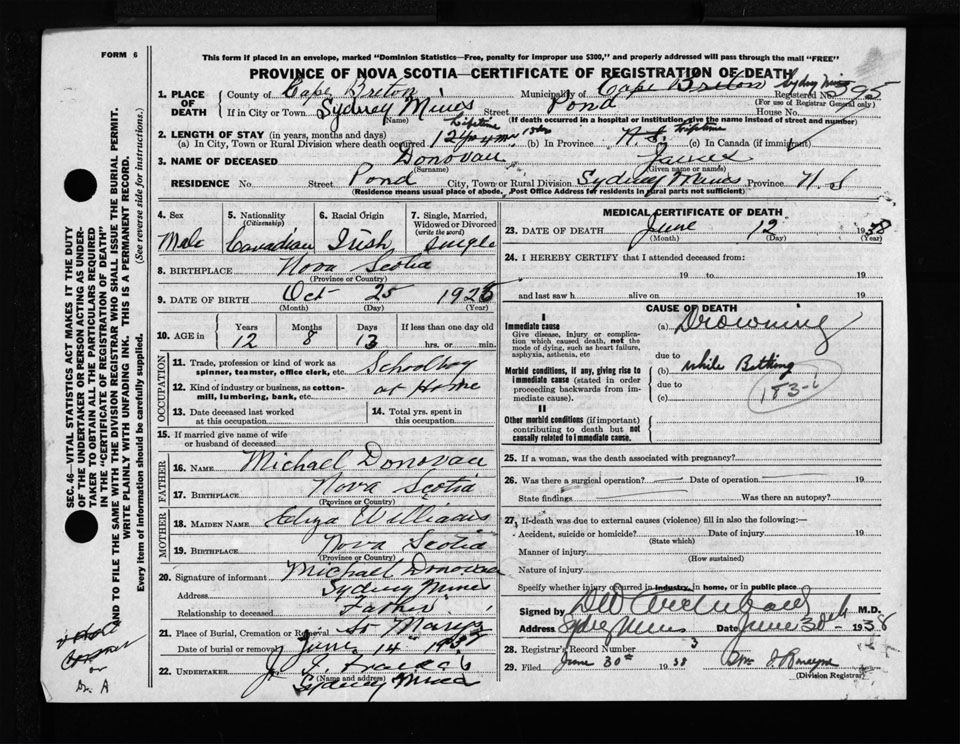 FORM 6
This form if placed in an envelope, marked "Dominion Statistics—Free, penalty for improper use $300," and properly addressed will pass through the mail "FREE"
PROVINCE OF NOVA SCOTIA—CERTIFICATE OF REGISTRATION OF DEATH
1. PLACE OF DEATH
County of Cape Breton Municipality of Cape Breton Sydney Mines Registered No. 595
(For use of Registrar General only)
If in City or Town Sydney Mines Street Pond House No.
(Name) (If death occurred in a hospital or institution, give the name instead of street and number)
2. LENGTH OF STAY (in years, months and days) Lifetime
(a) In City, Town or Rural Division where death occurred 12 (b) In Province N.S. Lifetime (c) In Canada (if immigrant)
3. NAME OF DECEASED Donovan James
(Surname) (Given name or names)
RESIDENCE No. Street Pond City, Town or Rural Division Sydney Mines Province N. S
(Residence means usual place of abode. Post Office Address for residents in rural parts not sufficient)
4. Sex 5. Nationality (Citizenship) 6. Racial Origin 7. Single, Married, Widowed or Divorced (write the word)
Male Canadian Irish Single
8. BIRTHPLACE Nova Scotia
(Province or Country)
9. DATE OF BIRTH Oct 25 192
(Month) (Day) (Year)
10. AGE in Years Months Days If less than one day old
12 8 13 hrs. or min.
OCCUPATION
11. Trade, profession or kind of work as spinner, teamster, office clerk, etc. Schoolboy
12. Kind of industry or business, as cotton-mill, lumbering, bank, etc. at Home
13. Date deceased last worked at this occupation 14. Total yrs. spent in this occupation
15. If married give name of wife or husband of deceased
FATHER
16. NAME Michael Donovan
17. BIRTHPLACE Nova Scotia
(Province or Country)
MOTHER
18. MAIDEN NAME Eliza Williams
19. BIRTHPLACE Nova Scotia
(Province or Country)
20. Signature of informant Michael Donovan
Address Sydney Mines
Relationship to deceased Father
21. Place of Burial, Cremation or Removal St Marys
Date of burial or removal June 14 193
22. UNDERTAKER J.
(Name and address)
Sydney Mines
MEDICAL CERTIFICATE OF DEATH
23. DATE OF DEATH June 12 1938
(Month) (Day) (Year)
24. I HEREBY CERTIFY that I attended deceased from:
19 to 19
and last saw h alive on 19
CAUSE OF DEATH
I
Immediate cause
Give disease, injury or complication which caused death, not the mode of dying, such as heart failure, asphyxia, asthenia, etc
(a) Drowning
due to
Morbid conditions, if any, giving rise to immediate cause (stated in order proceeding backwards from immediate cause).
(b) while Bathing
due to
(c)
183-
II
Other morbid conditions (if important) contributing to death but not causally related to immediate cause.
25. If a woman, was the death associated with pregnancy?
26. Was there a surgical operation? Date of operation 19
State findings Was there an autopsy?
27. If death was due to external causes (violence) fill in also the following:—
Accident, suicide or homicide? Date of injury 19
(State which)
Manner of injury
(How sustained)
Nature of injury
Specify whether injury occurred in industry, in home, or in public place
Signed by M.D.
Address Syd. Mines Date June 30th 1938
28. Registrar's Record Number 3
29. Filed June 30th 19 38
(Division Registrar)
SEC. 46—VITAL STATISTICS ACT MAKES IT THE DUTY
OF THE UNDERTAKER OR PERSON ACTING AS UNDER-
TAKER TO OBTAIN ALL THE PARTICULARS REQUIRED
IN THE "CERTIFICATE OF REGISTRATION OF DEATH"
AND TO FILE THE SAME WITH THE DIVISION REGISTRAR WHO SHALL ISSUE THE BURIAL PERMIT.
WRITE PLAINLY WITH UNFADING INK. THIS IS A PERMANENT RECORD.
Every item of information should be carefully supplied. (See reverse side for instructions.)
Coroner
or
Dr. A